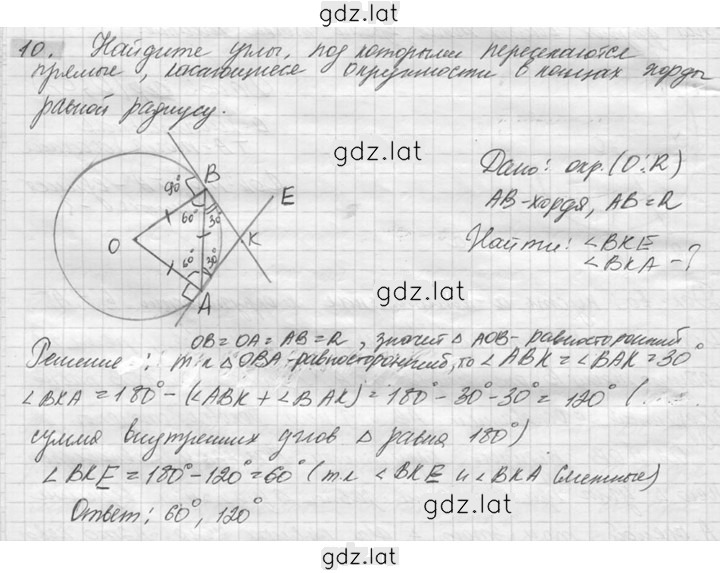 gdz.lat
10. Найдите углы, под которыми пересекаются
прямые, касающиеся окружности в концах хорды
равной радиусу.
gdz.lat
Дано: окр. (O; R)
AB-хорда, AB=R
Найти: ∠BKE
∠BKA -?
B
90°
E
60°
30°
O
K
60°
30°
A
gdz.lat
OB=OA=AB=R, значит △ AOB- равносторонний
Решение: т.к △OBA-равносторонний, то ∠ABK=∠BAK=30°
∠BKA =180°-(∠ABK+∠BAK)=180°-30°-30°=120° (
сумма внутренних углов △ равна 180°)
∠BKE=180°-120°=60° (т.к ∠BKE и ∠BKA смежные)
Ответ: 60°, 120°
gdz.lat
gdz.lat